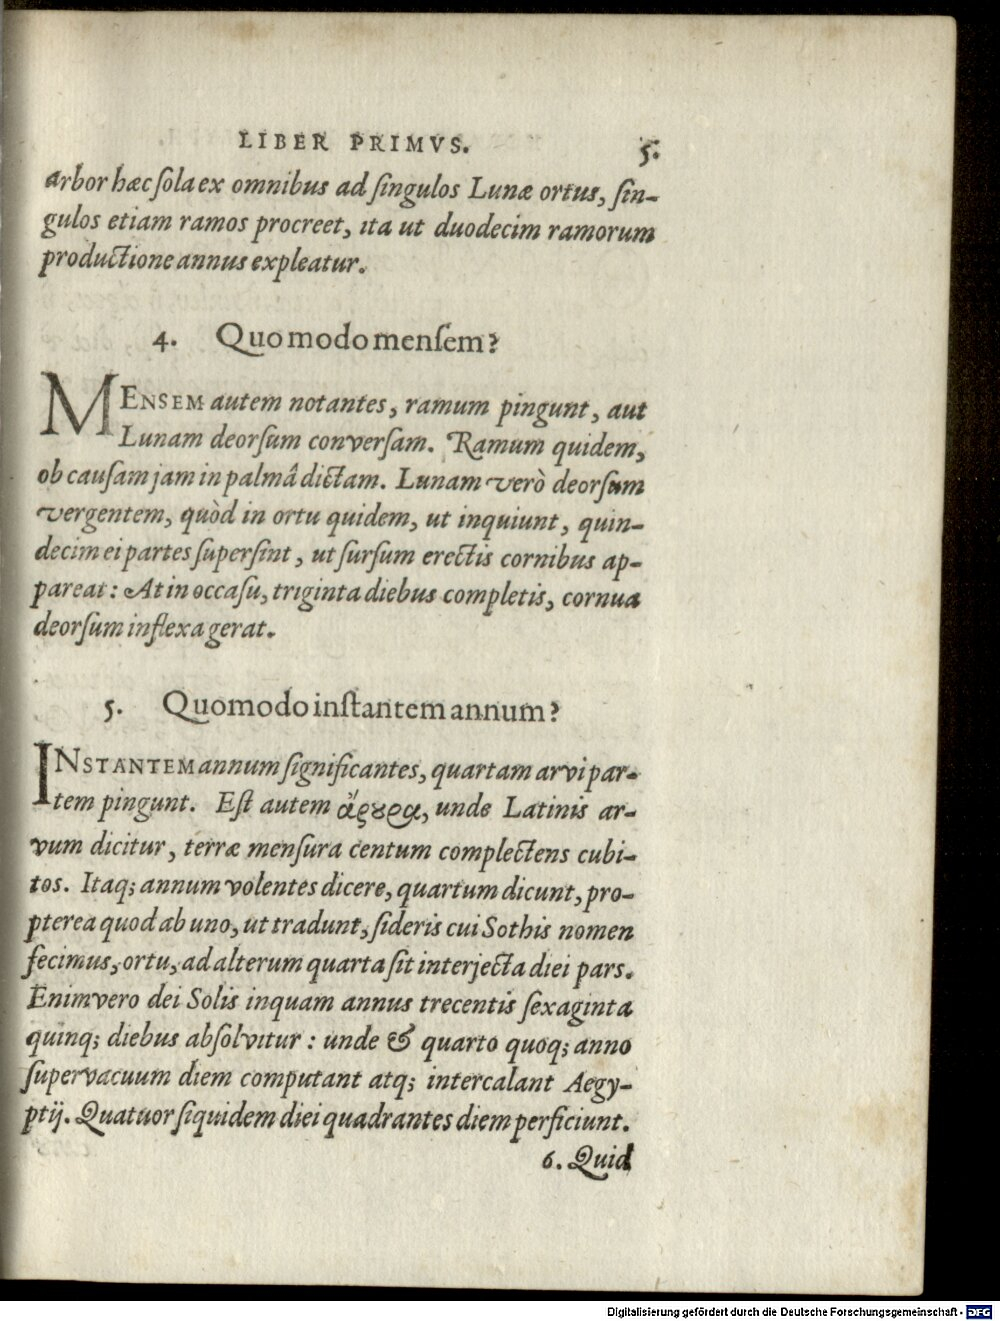 LIBER PRIMVS. 5.
arbor hæc ſola ex omnibus ad ſingulos Lunæ ortus, ſin-
gulos etiam ramos procreet, ita ut duodecim ramorum
productione annus expleatur.
4. Quomodo menſem?
MENSEM autem notantes, ramum pingunt, aut
Lunam deorſum converſam. Ramum quidem,
ob cauſam jam in palmâ dictam. Lunam verò deorſum
vergentem, quòd in ortu quidem, ut inquiunt, quin-
decim ei partes ſuperſint, ut ſurſum erectis cornibus ap-
pareat: At in occaſu, triginta diebus completis, cornua
deorſum inflexa gerat.
5. Quomodo inſtantem annum?
INSTANTEM annum ſignificantes, quartam arvi par-
tem pingunt. Eſt autem ἄρȣρα, unde Latinis ar-
vum dicitur, terræ menſura centum complectens cubi-
tos. Itaq; annum volentes dicere, quartum dicunt, pro-
pterea quod ab uno, ut tradunt, ſideris cui Sothis nomen
fecimus, ortu, ad alterum quarta ſit interjecta diei pars.
Enimvero dei Solis inquam annus trecentis ſexaginta
quinq; diebus abſolvitur: unde & quarto quoq; anno
ſupervacuum diem computant atq; intercalant Aegy-
ptij. Quatuor ſiquidem diei quadrantes diem perficiunt.
6. Quid
Digitalisierung gefördert durch die Deutsche Forschungsgemeinschaft - DFG